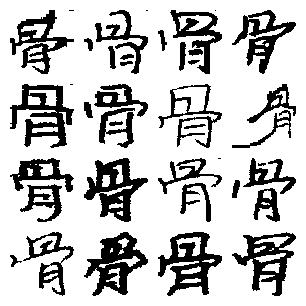 骨骨骨骨
骨骨骨骨
骨骨骨骨
骨骨骨骨